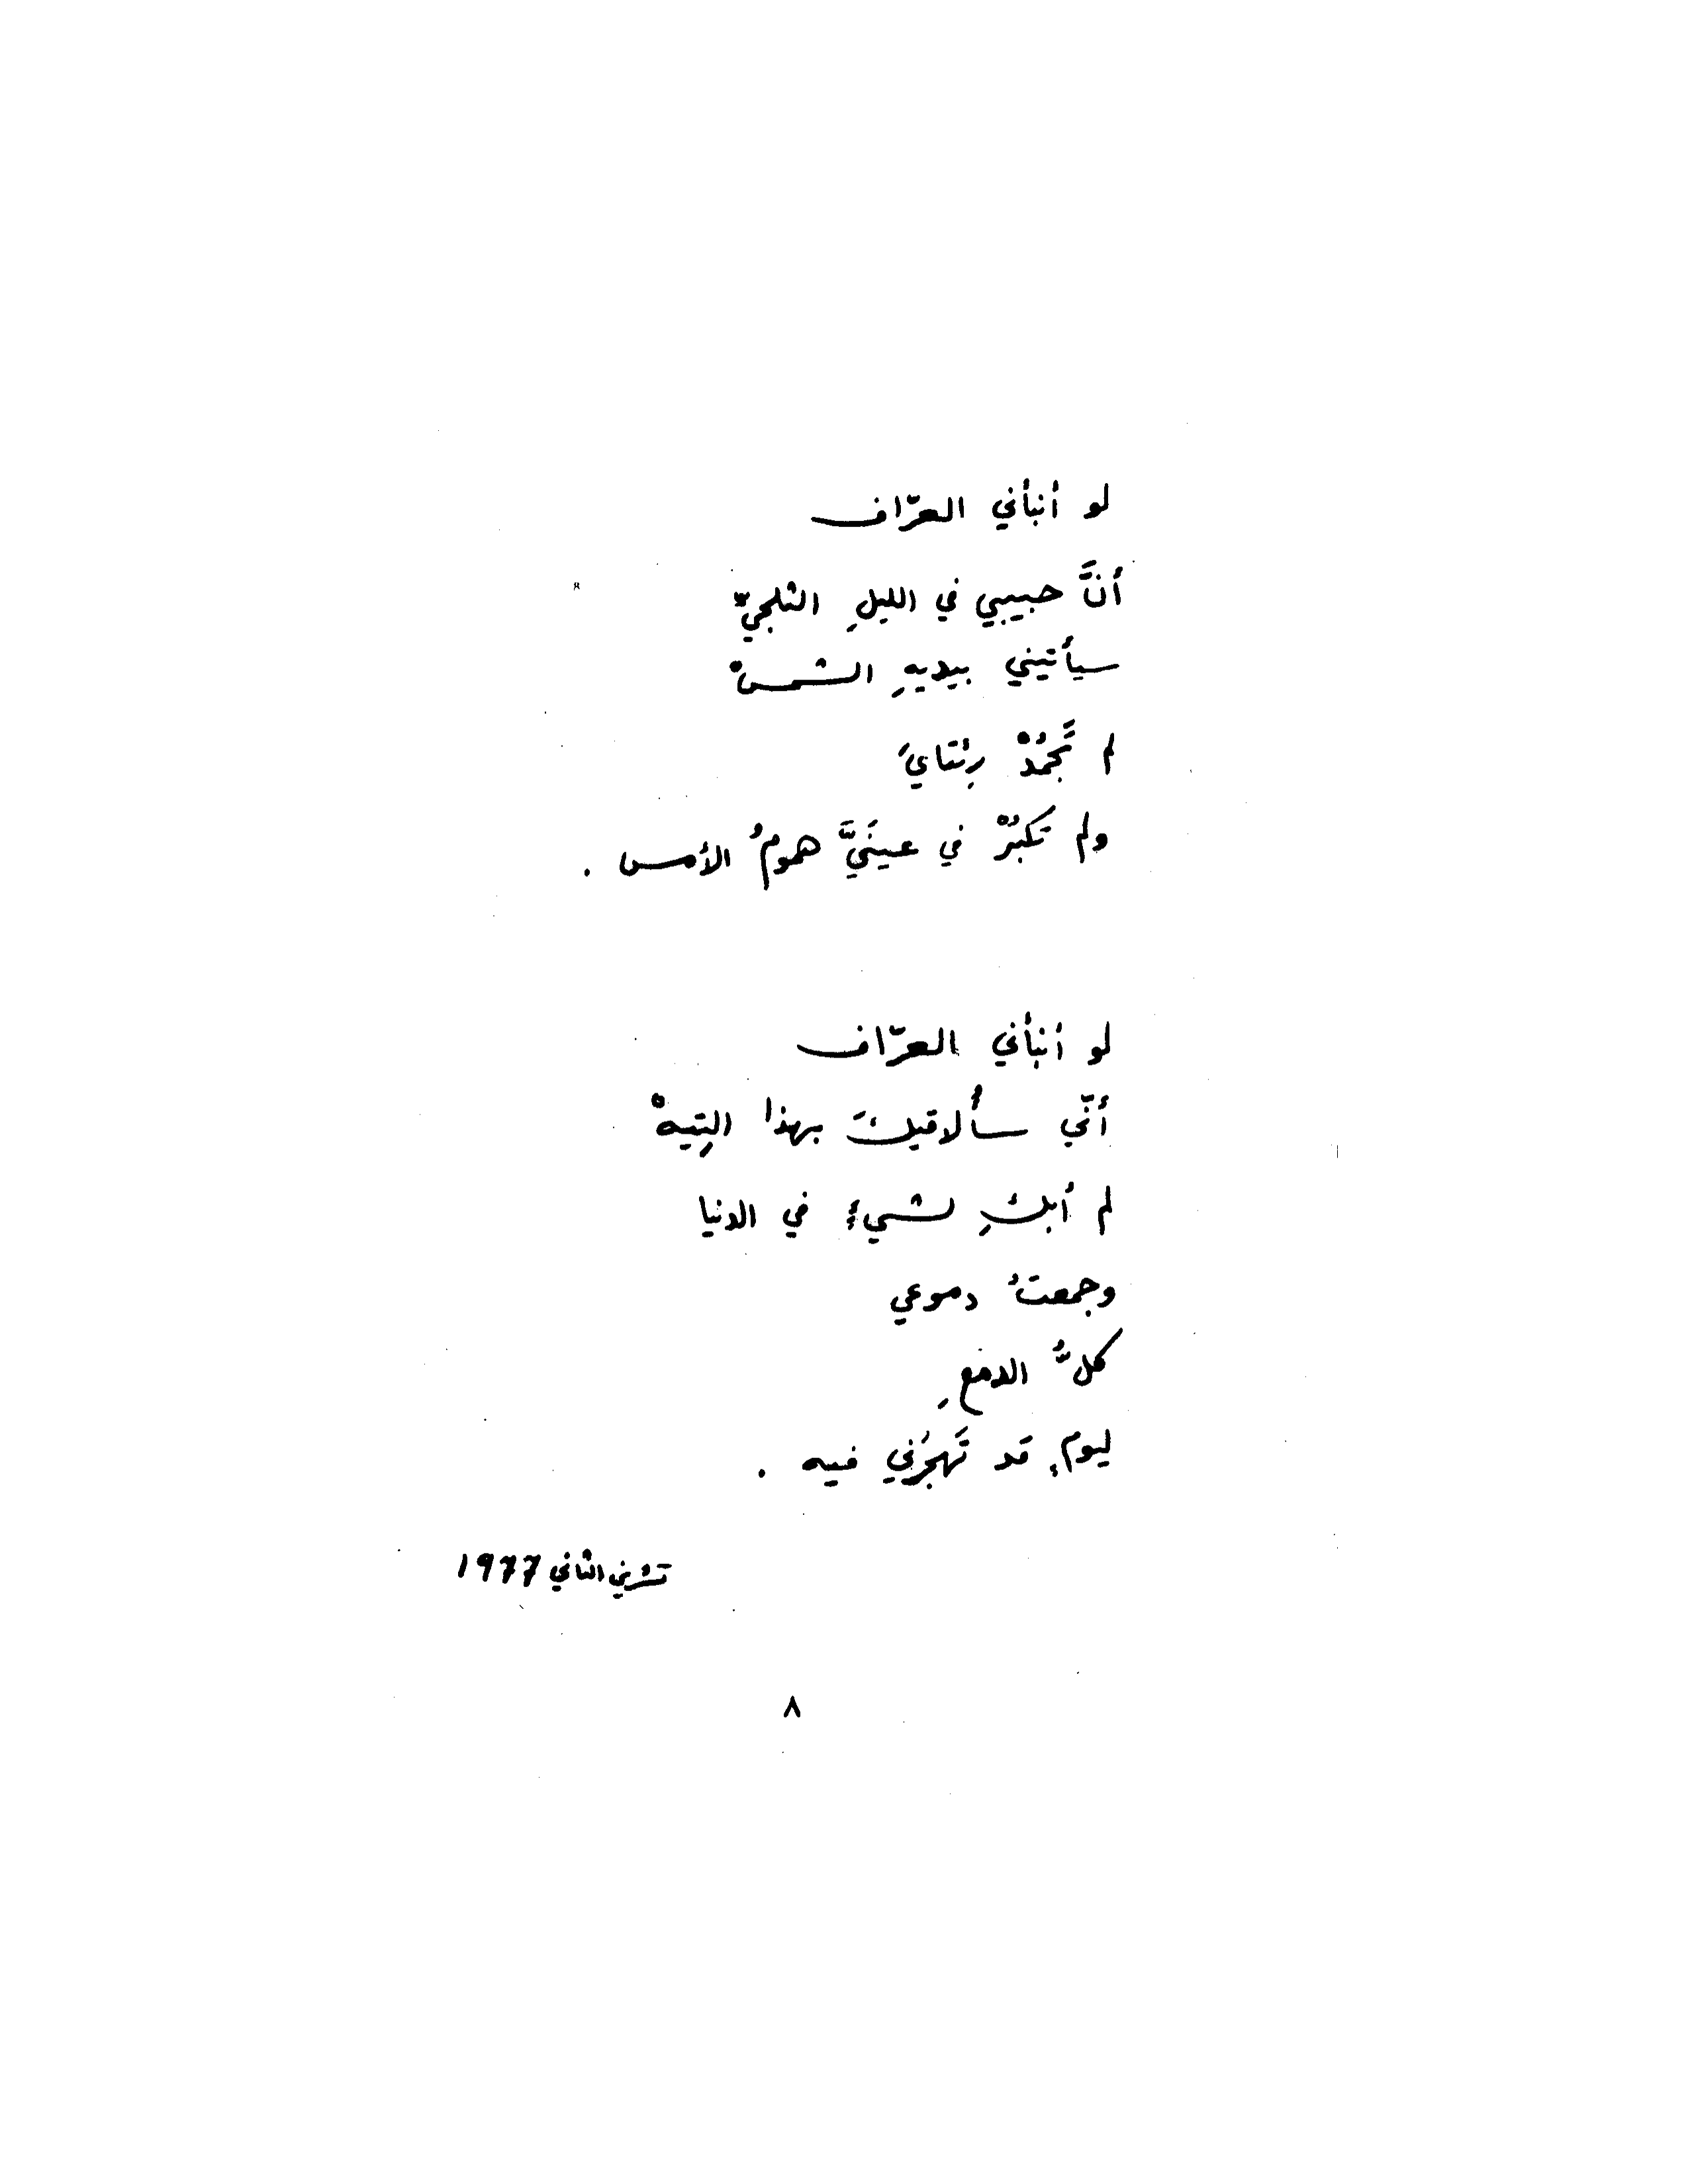 لو أنبأني العرّاف
أنَّ حبيبي في الليلِ الثلجيّ
سيأتيني بيديهِ الشمسْ
لم تَجمُدْ رئتايَ
ولم تكبُرْ في عينَيَّ همومُ الأمس .
لو أنبأني العرّاف
أنّي سأُلاقيكَ بهذا التِيهْ
لم أبكِ لشيءٍ في الدنيا
وجمعتُ دموعي
كلُّ الدمعِ
ليومٍ قد تَهجُرُني فيه .
تشرين الثاني 1977
٨